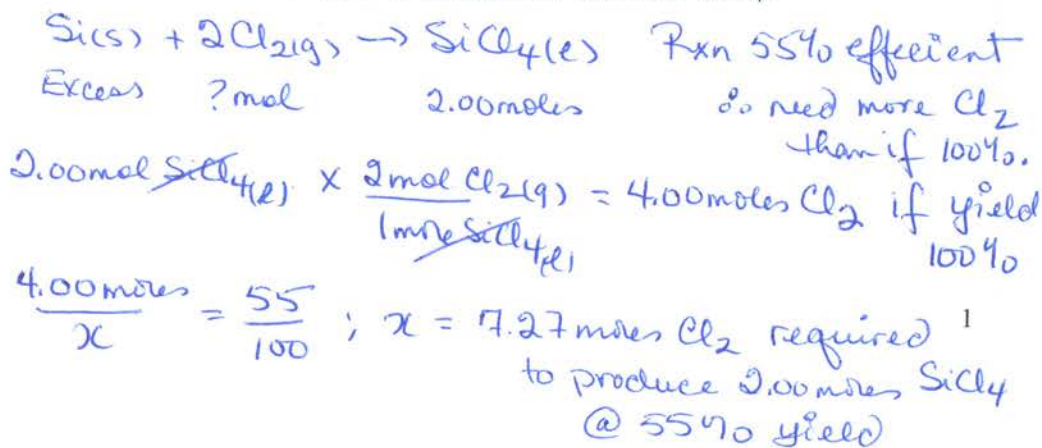 Si(s) + 2Cl2(g) → SiCl4(l) Rxn 55% effecient
Excess ?mol 2.00moles ∴ need more Cl2
than if 100%.
2.00mol SiCl4(l) × 2mol Cl2(g) = 4.00moles Cl2 if yield
1mole SiCl4(l) 100%
4.00moles = 55 ; x = 7.27moles Cl2 required 1
x 100 to produce 2.00moles SiCl4
@ 55% yield